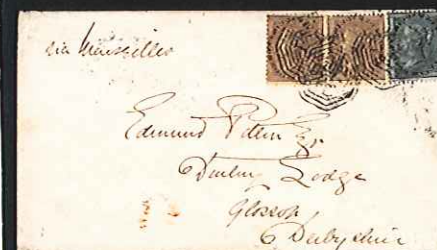 via Marseilles
Edmund Potter Esqr
Lodge
Glossop
Derbyshire